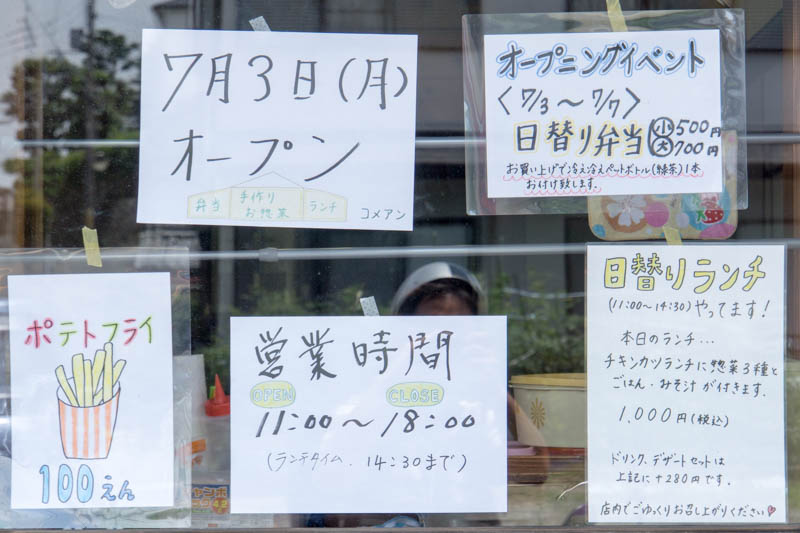 7月3日(月)
オープン
弁当
手作り
お惣菜
ランチ
コメアン
オープニングイベント
〈7/3〜7/7〉
日替り弁当
小500円
大700円
お買い上げで冷え冷えペットボトル(緑茶)1本
お付け致します。
ポテトフライ
100えん
営業時間
OPEN
CLOSE
11:00〜18:00
(ランチタイム. 14:30まで)
日替りランチ
(11:00〜14:30)やってます!
本日のランチ…
チキンカツランチに惣菜3種と
ごはん・みそ汁が付きます.
1,000円(税込)
ドリンク、デザートセットは
上記に+280円です.
店内でごゆっくりお召し上がりください♡